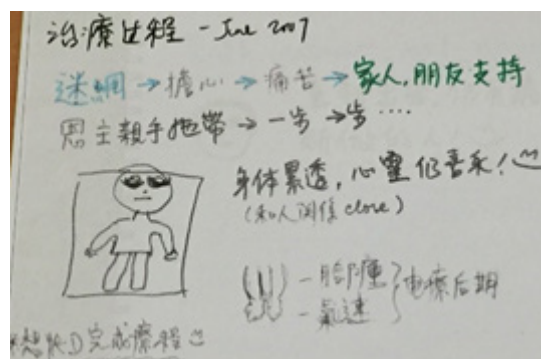 治療过程 - June 2007
迷網 → 擔心 → 痛苦 → 家人,朋友支持
恩主親手拖帶 → 一步 → 步 ....
身体累透,心靈仍喜乐!
(和人関係 close)
- 腳腫
- 氣速
电療后期
想快D完成療程